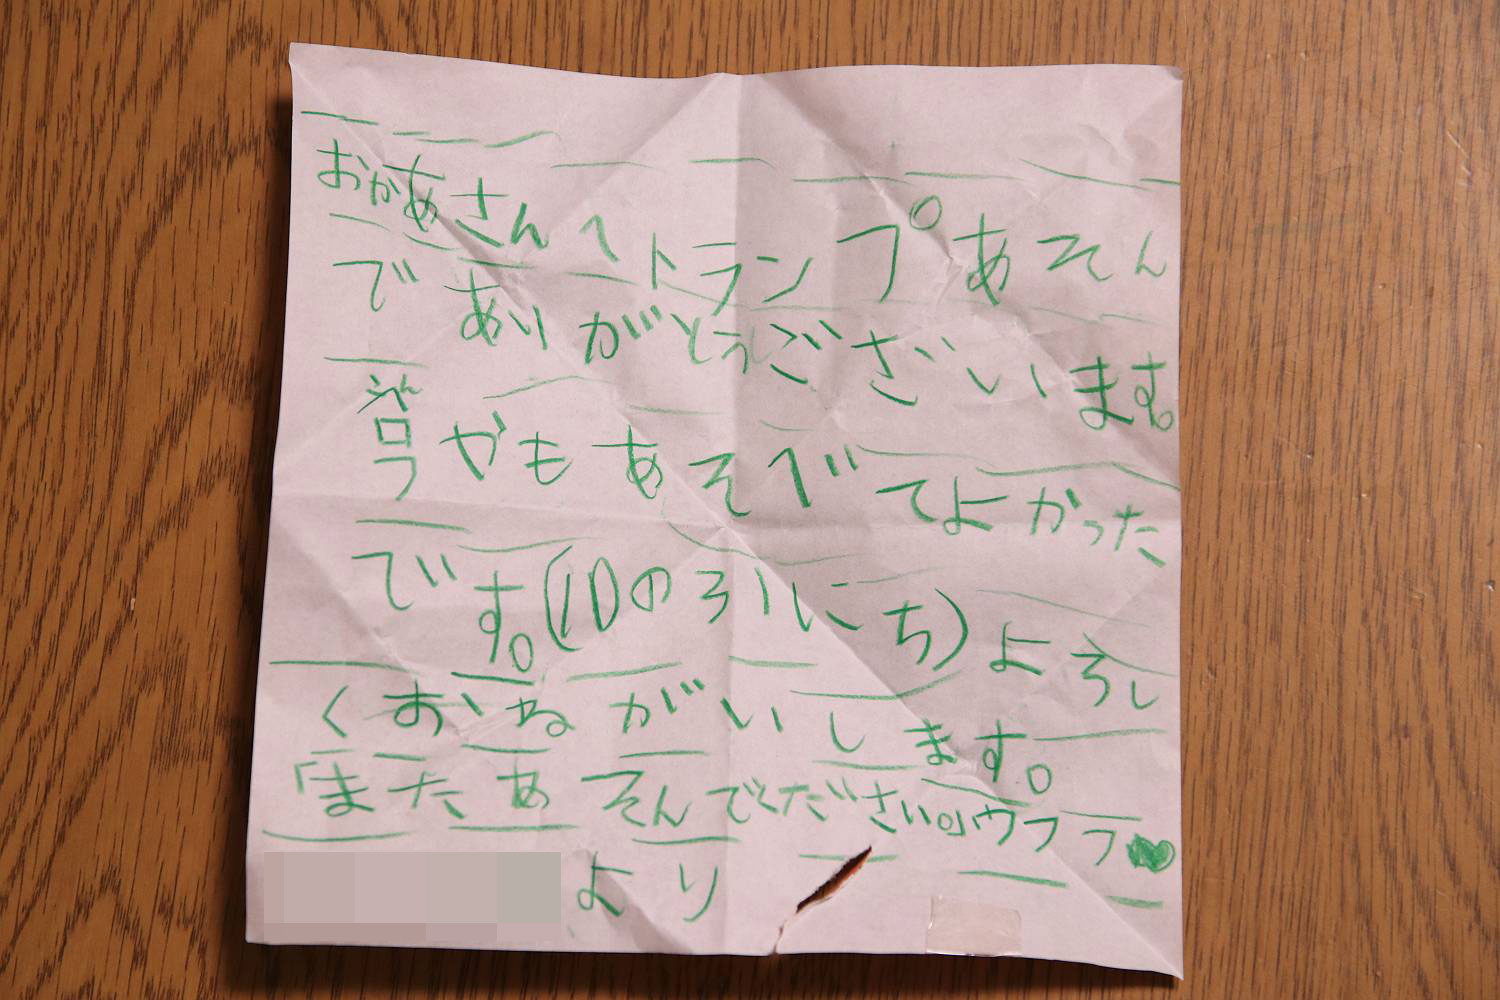 おかあさんへトランプあそん
でありがとうございます。
号がもあそべてよかった
です。(10のろいにち)よろし
くおねがいします。
「またあそんでくださいo」ウフフ♥
より